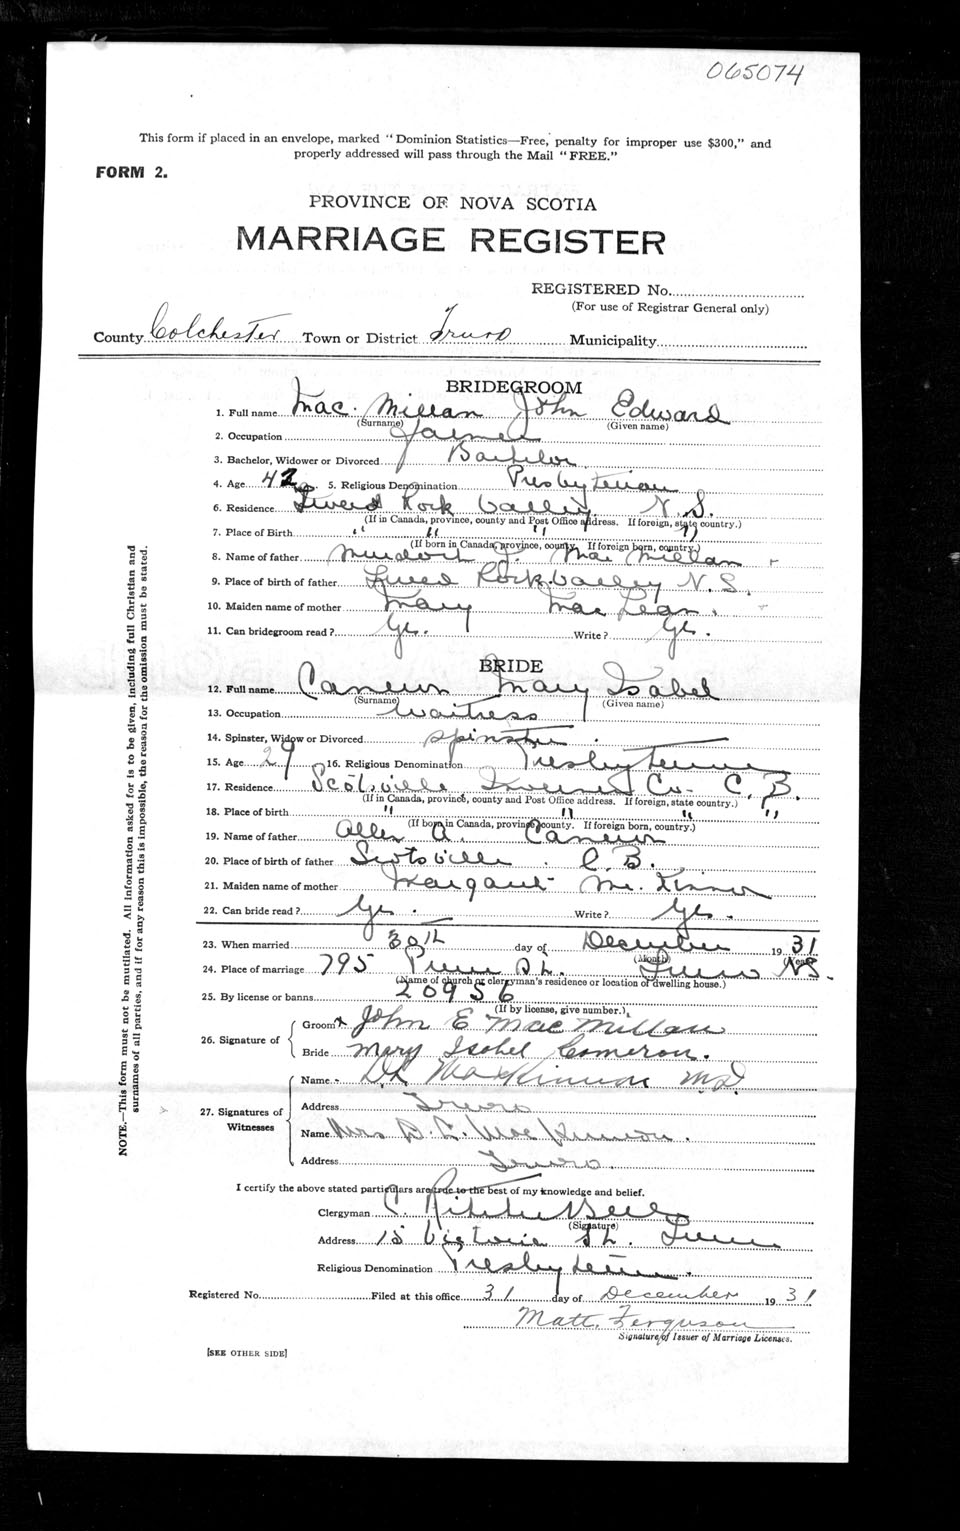 065074
This form if placed in an envelope, marked "Dominion Statistics—Free, penalty for improper use $300," and
properly addressed will pass through the Mail "FREE."
FORM 2.
PROVINCE OF NOVA SCOTIA
MARRIAGE REGISTER
REGISTERED No.
(For use of Registrar General only)
County Colchester Town or District Truro Municipality
BRIDEGROOM
1. Full name Mac Millan John Edward
(Surname) (Given name)
2. Occupation Farmer
3. Bachelor, Widower or Divorced Bachelor
4. Age 42 5. Religious Denomination Presbyterian
6. Residence Rock Valley N. S.
(If in Canada, province, county and Post Office address. If foreign, state country.)
7. Place of Birth " " " "
(If born in Canada, province, county. If foreign born, country.)
8. Name of father Murdoch J. Mac Millan
9. Place of birth of father Rock Valley N. S.
10. Maiden name of mother Mary Mac Lean
11. Can bridegroom read? Yes. Write? Yes.
BRIDE
12. Full name Cameron Mary Isabel
(Surname) (Given name)
13. Occupation Waitress
14. Spinster, Widow or Divorced Spinster
15. Age 29 16. Religious Denomination Presbyterian
17. Residence Scotsville Inverness Co. C. B.
(If in Canada, province, county and Post Office address. If foreign, state country.)
18. Place of birth " " " "
(If born in Canada, province county. If foreign born, country.)
19. Name of father Allen A. Cameron
20. Place of birth of father Scotsville C. B.
21. Maiden name of mother Margaret Mc. Kinnon
22. Can bride read? Yes. Write? Yes.
23. When married 30th day of December 1931
(Month) (Year)
24. Place of marriage 795 Prince St. Truro N.S.
(Name of church or clergyman's residence or location of dwelling house.)
25. By license or banns 20956
(If by license, give number.)
26. Signature of Groom John E Mac Millan
Bride Mary Isobel Cameron.
27. Signatures of Witnesses
Name MacKinnon M.D.
Address Truro
Name Mrs D. L. MacKinnon.
Address Truro.
I certify the above stated particulars are true to the best of my knowledge and belief.
Clergyman C. Ritchie Bell
(Signature)
Address 15 Victoria St. Truro
Religious Denomination Presbyterian.
Registered No. Filed at this office 31 day of December 1931
Matt. Ferguson
Signature of Issuer of Marriage Licenses.
[SEE OTHER SIDE]
NOTE.—This form must not be mutilated. All information asked for is to be given, including full Christian and
surnames of all parties, and if for any reason this is impossible, the reason for the omission must be stated.